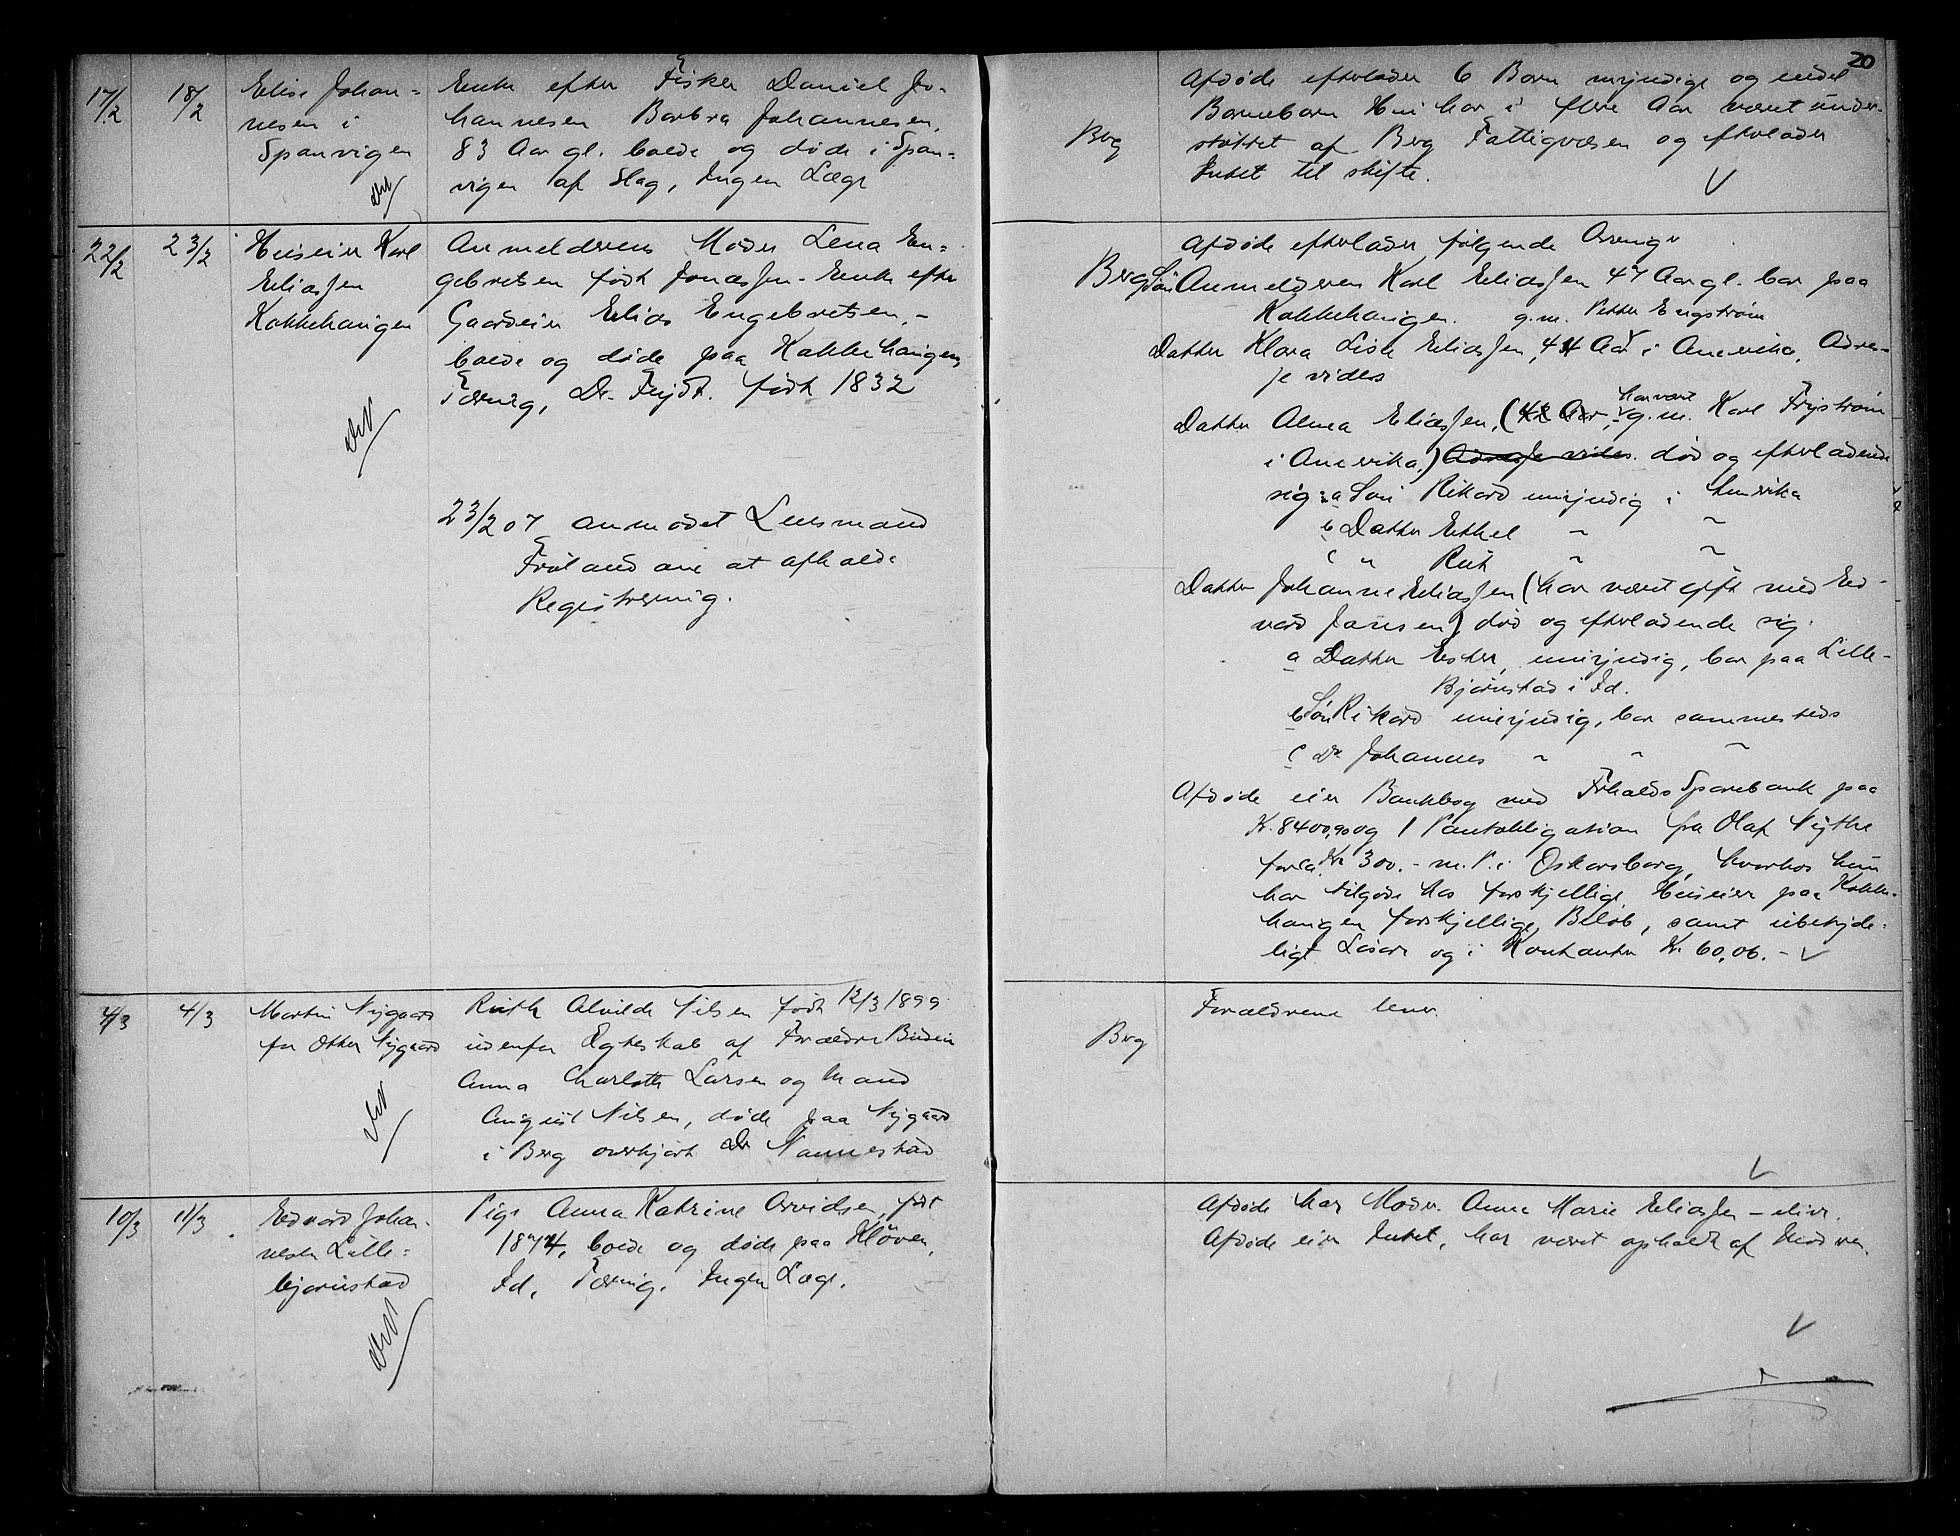 20
17/2 18/2 Elise Johan-
nesen i
Spanvigen
Enke efter Fisker Daniel Jo-
hannesen Barbra Johannesen,
83 Aar gl. boede og døde i Span-
vigen af Slag, Ingen Læge
Berg
Afdøde efterlader 6 Børn myndige og endel
Børnebørn Hun har i flere Aar været under-
støttet af Berg Fattigvæsen og efterlader
Intet til skifte.
22/2 23/2 Huseier Karl
Eliassen
Kokkehaugen
Anmelderens Moder Lena En-
gebretsen født Jonassen - Enke efter
Gaardeier Elias Engebretsen, -
boede og døde paa Kokkehaugen,
Tæring, Dr. Fejdt. født 1832
23/2 07 anmodet Lensmand
Fröland om at afholde
Registrering.
Berg
Afdøde efterlader følgende Arvinger
Søn Anmelderen Karl Eliassen 47 Aar gl. bor paa
Kokkehaugen. g.m. Petter Engstrøm
Datter Klara Lise Eliassen, 44 Aar i Amerika, Adres-
se vides
Datter Alma Eliassen, (42 Aar, har været g.m. Karl Frystrøm
i Amerika,) Adresse vides. død og efterladende
sig: a Søn Rikard umyndig i Amerika
b Datter Ethel " "
c " Rut " "
Datter Johanne Eliassen (har været gift med Ed-
vard Jansen) død og efterladende sig.
a Datter Ester, umyndig, bor paa Lille-
Bjørnstad i Id.
b Søn Rikard umyndig, bor sammesteds
c Do Johannes " " "
Afdøde eier Bankbog med Fr.halds Sparebank paa
Kr. 8400,90 og 1 Pantobligation fra Olaf Nythe
for ca. Kr 300.- m. P. i Oskarsborg, hvorhos hun
har tilgode hos forskjellige Huseier paa Kokke-
haugen forskjellige Beløb, samt ubetyde-
ligt Løsøre og i Kontanter Kr 60,06. -
4/3 4/3 Martin Nygaard
for Otter Nygaard
Ruth Alvilde Nilsen født 12/3 1899
udenfor Egteskab af Forældre Budeie
Anna Charlotte Larsen og Mand
August Nilsen, døde paa Nygaard
i Berg overkjørt Dr Nannestad
Berg
Forældrene lever.
10/3 11/3 Edvard Johan-
nesen Lille-
bjørnstad
Pige Anna Katrine Arvidsen, født
1874, boede og døde paa Kløven,
Id, Tæring. Ingen Læge.
Afdøde har Moder. Anne Marie Eliassen - elier.
Afdøde eier Intet, har været opholdt af Moderen.